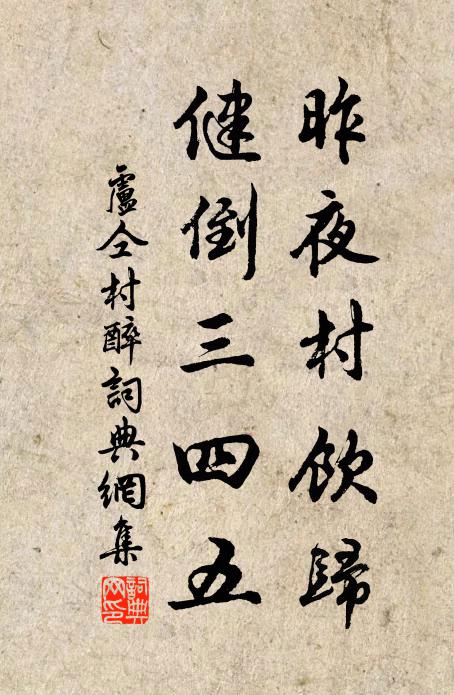 昨夜村飲歸
健倒三四五
盧仝村醉詞典網集
詞典
網印